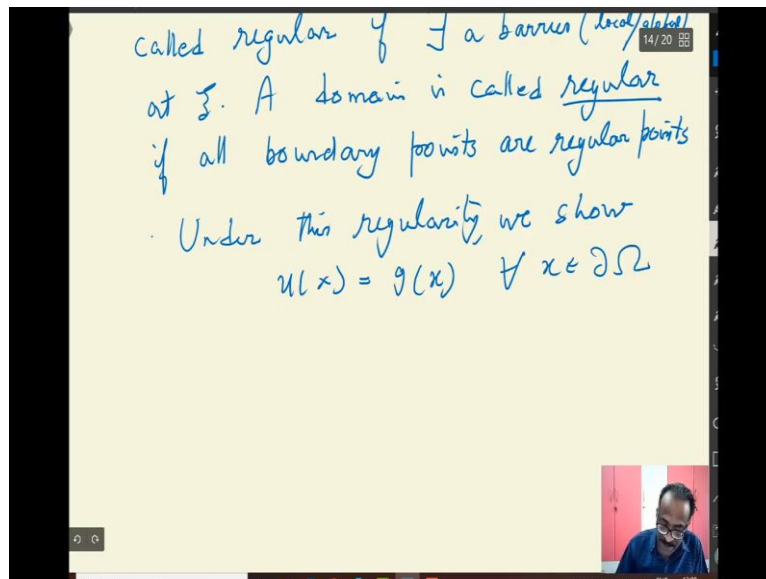 called regular if ∃ a barrier (local/global)
14/20
at ξ. A domain is called regular
if all boundary points are regular points
. Under this regularity, we show
u(x) = g(x) ∀ x ∈ ∂Ω